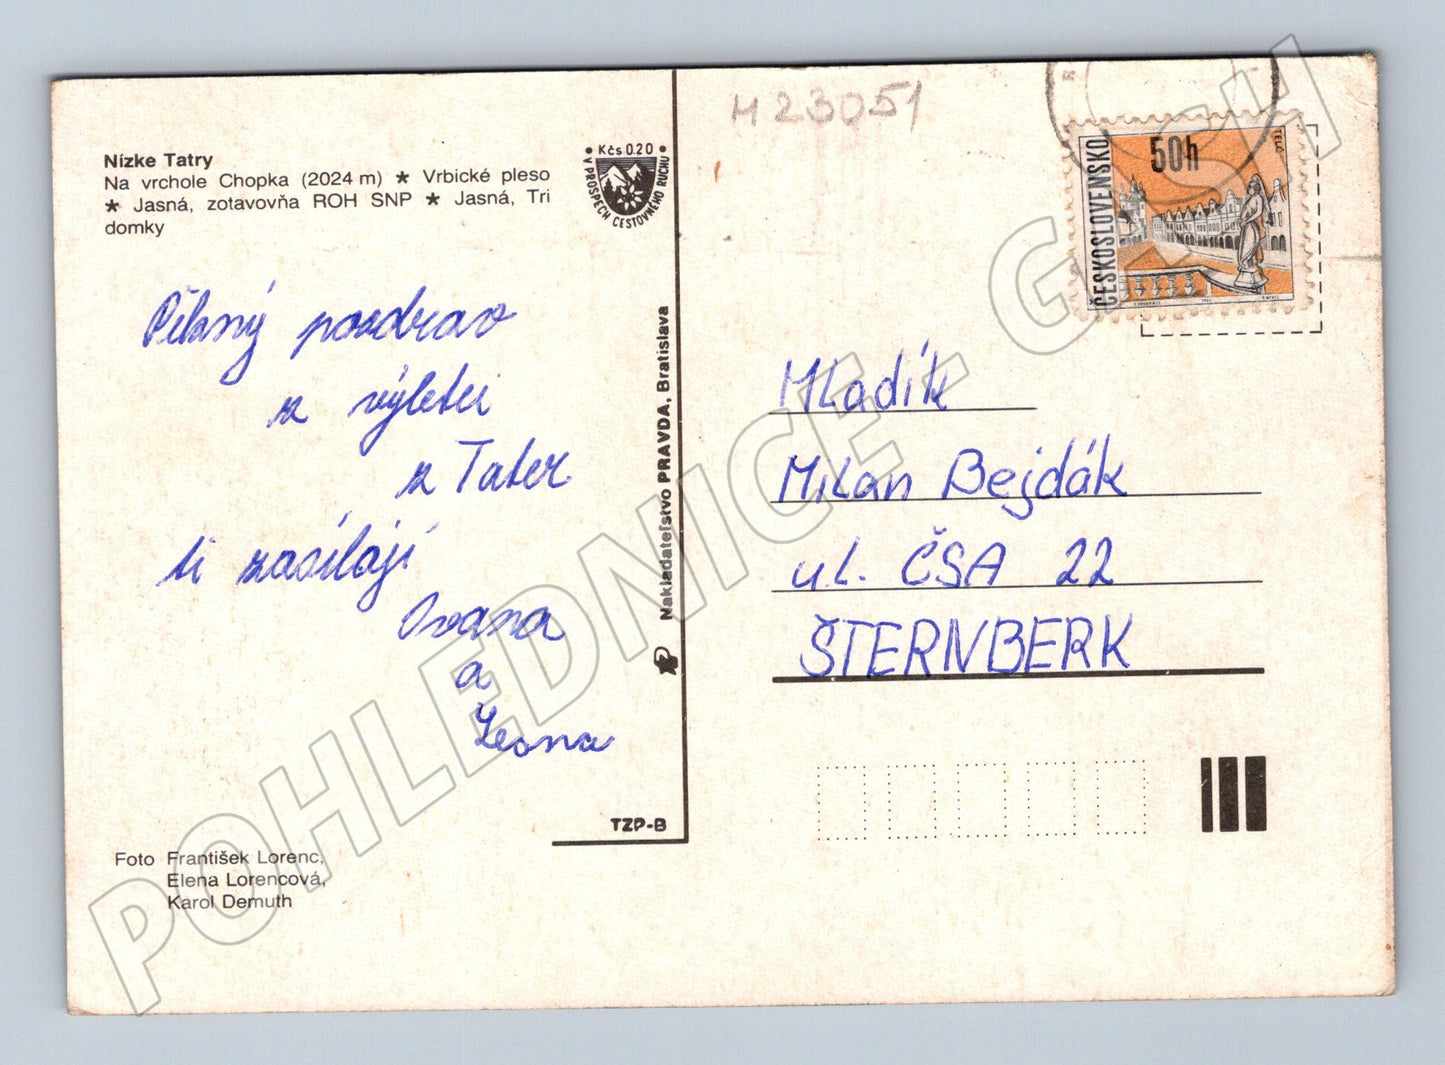 Nízke Tatry
Na vrchole Chopka (2024 m) ★ Vrbické pleso
★ Jasná, zotavovňa ROH SNP ★ Jasná, Tri
domky
Kčs 0.20
V PROSPECH CESTOVNÉHO RUCHU
Pěkný pozdrav
z výletu
z Tater
ti zasílají
Ivana
a
Leona
Nakladateľstvo PRAVDA, Bratislava
TZP-B
Foto František Lorenc,
Elena Lorencová,
Karol Demuth
M 23051
ČESKOSLOVENSKO
50h
TELČ
Mladík
Milan Bejdák
ul. ČSA 22
ŠTERNBERK